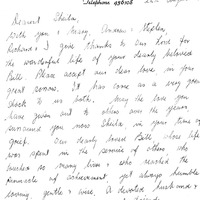 Telephone 456108
Dearest Sheila,
With you & Mary, Andrew & Stephen,
Richard & I give thanks to our Lord for
the wonderful life of your dearly beloved
Bill. Please accept our dear love in your
great sorrow. It has come as a very great
shock to us both. May the love you
have given out to others over the years
surround you now Sheila in your time of
grief. Our dearly loved Bill whose life
was spent in the service of others who
touched so many lives & who reached the
pinnacle of achievement yet always humble
loving gentle & wise. A devoted husband &